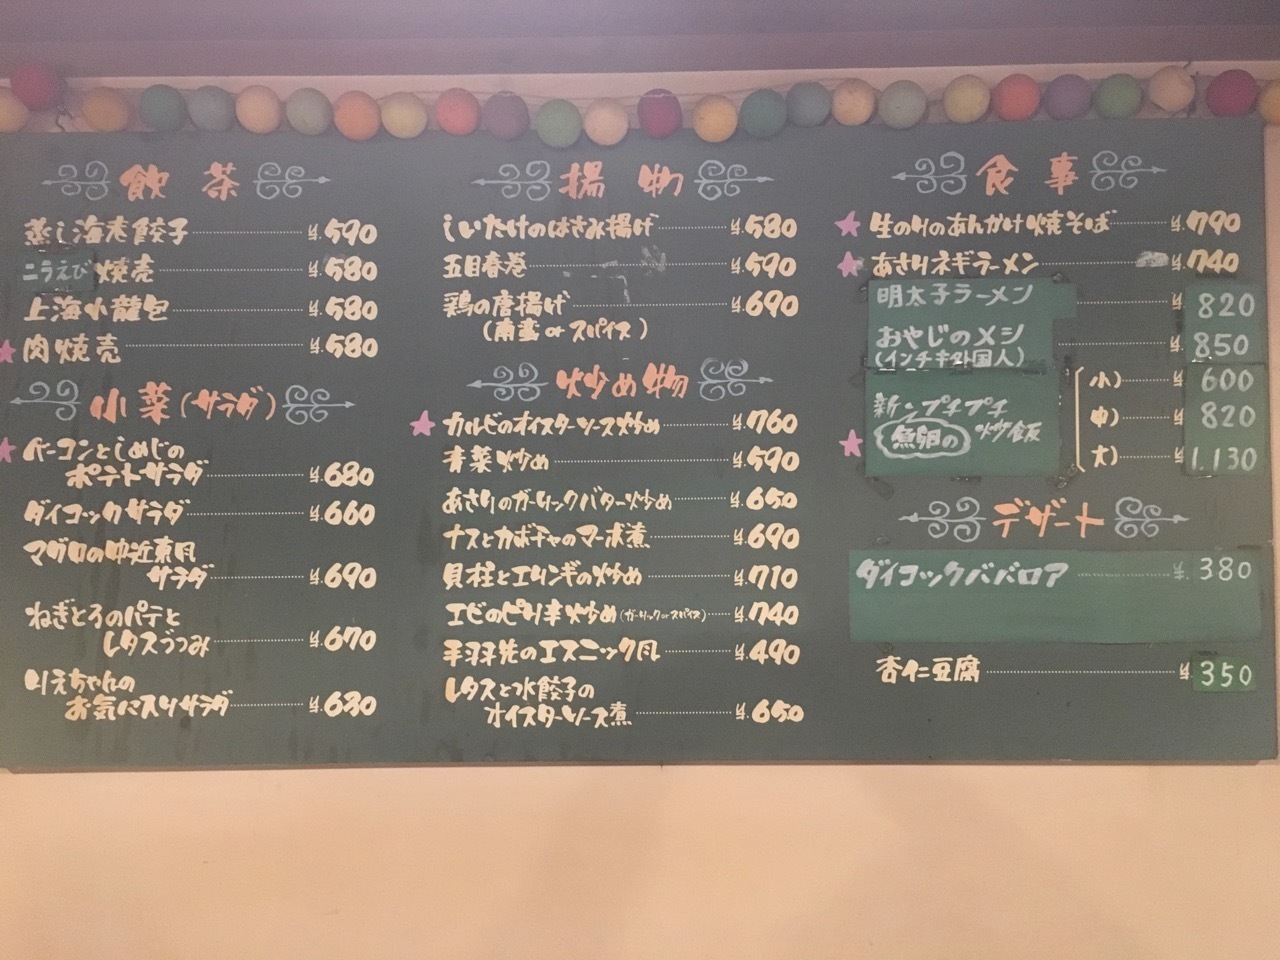 飲茶
蒸し海老餃子 ¥.590
ニラえび焼売 ¥.580
上海小龍包 ¥.580
肉焼売 ¥.580
小菜(サラダ)
ベーコンとしめじの
ポテトサラダ ¥.680
ダイコックサラダ ¥.660
マグロの中近東風
サラダ ¥.690
ねぎとろのパテと
レタスづつみ ¥.670
りえちゃんの
お気に入りサラダ ¥.630
揚物
しいたけのはさみ揚げ ¥.580
五目春巻 ¥.590
鶏の唐揚げ ¥.690
(南蛮 or スパイス)
炒め物
カルビのオイスターソース炒め ¥.760
青菜炒め ¥.590
あさりのガーリックバター炒め ¥.650
ナスとカボチャのマーボ煮 ¥.690
貝柱とエリンギの炒め ¥.710
エビのピリ辛炒め(ガーリック or スパイス) ¥.740
手羽先のエスニック風 ¥.490
レタスと水餃子の
オイスターソース煮 ¥.650
食事
生のりのあんかけ焼そば ¥.790
あさりネギラーメン ¥.740
明太子ラーメン ¥.820
おやじのメシ ¥.850
(インチキ外国人)
新ンプチプチ
魚卵の炒飯
小) ¥.600
中) ¥.820
大) ¥.1.130
デザート
ダイコックババロア ¥.380
杏仁豆腐 ¥.350